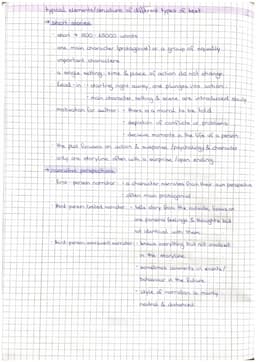 typical elements/structure of different types of text
→ short stories
short → 500 - 15000 words
one main character (protagonist) or a group of equally
important characters
a single setting, time & place of action did not change
lead-in : starting right away, one plunges into action
• main character, setting & scene are introduced slowly
motivation for author: • there is a moral to be told
• depiction of conflicts or problems
• decisive moments in the life of a person
the plot focuses on action & suspense /psychology & character
only one storyline, often with a surprise /open ending
→ narrative perspectives
first-person narrator : • a character narrates from their own perspective
• often main protagonist
third-person limited narrator: • tells story from the outside, knows of
one persons feelings & thoughts but
not identical with them
third-person omniscient narrator: • knows everything but not involved
in the storyline
• sometimes comments on events/
behaviour in the future
• style of narration is mainly
neutral & distanced